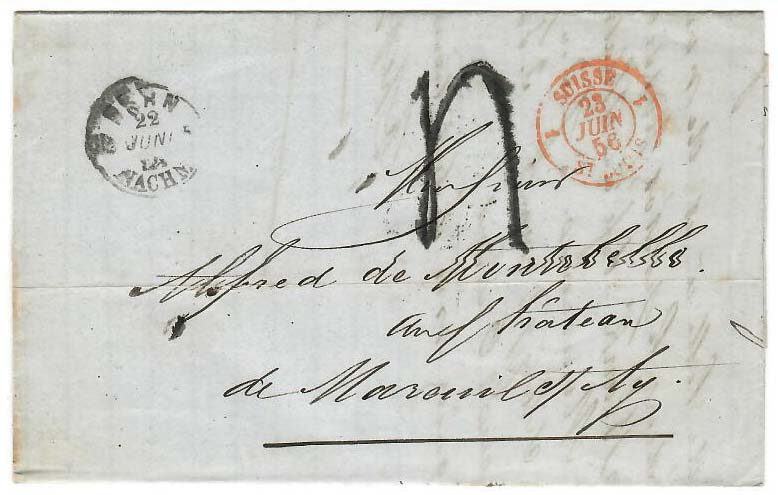 BERN
22
JUNI
NACHM
n
1 SUISSE 1
23
JUIN
56
ST LOUIS
Monsieur
Alfred de Montebello.
au Château
de Mareuil s/ Ay.